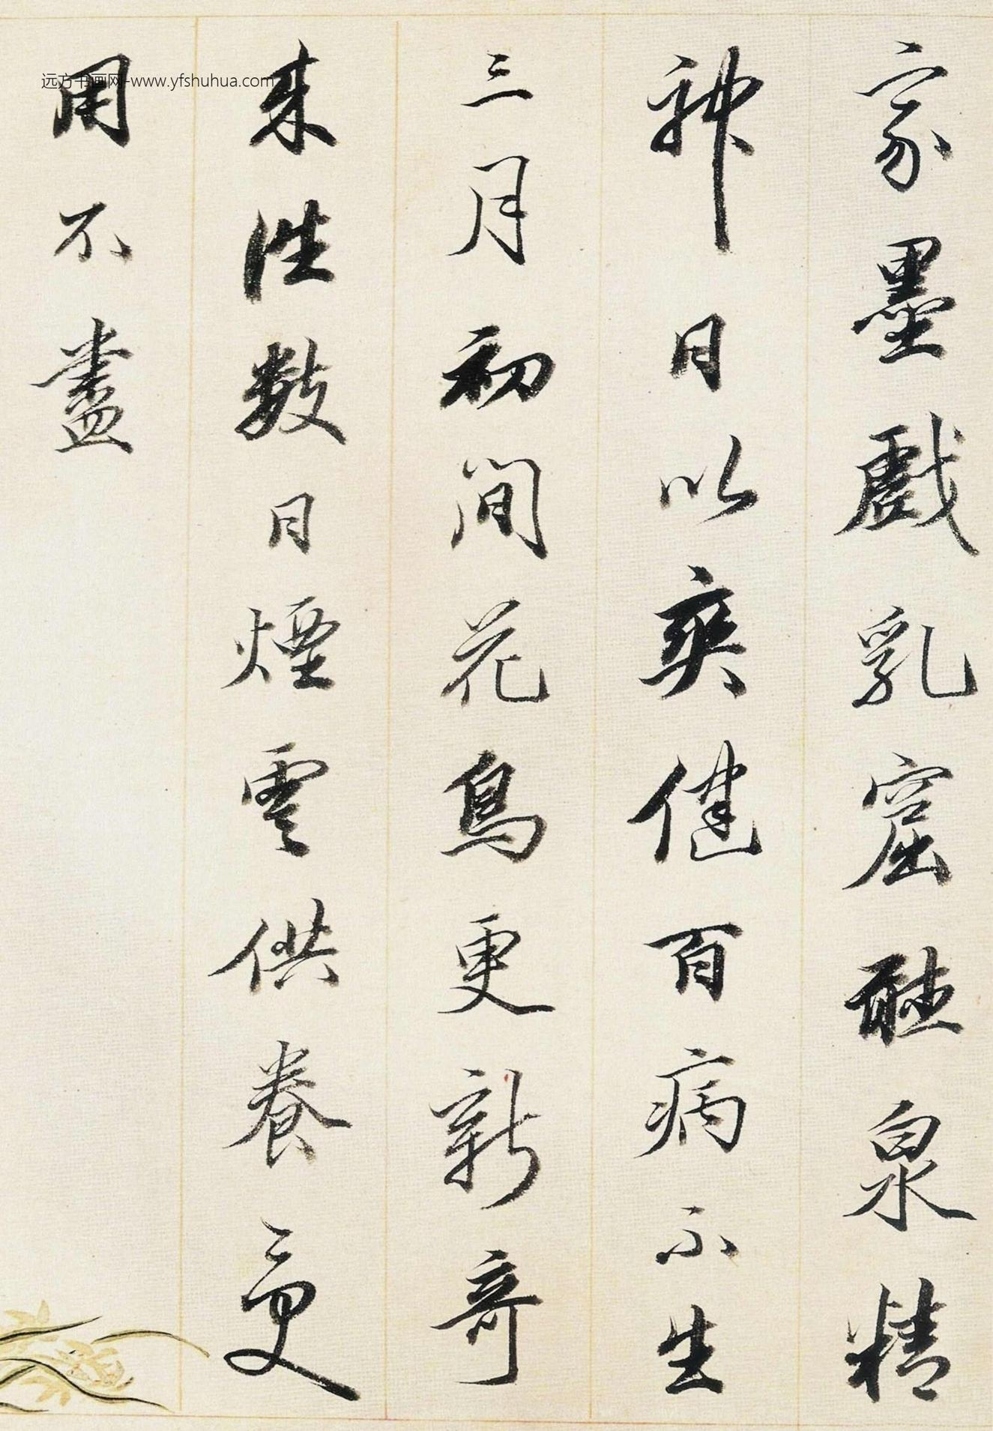 家墨戲乳窟泉精
神日以爽健百病不生
三月初間花鳥更新奇
來往數日煙雲供養受
用不盡
远方书画网-www.yfshuhua.com